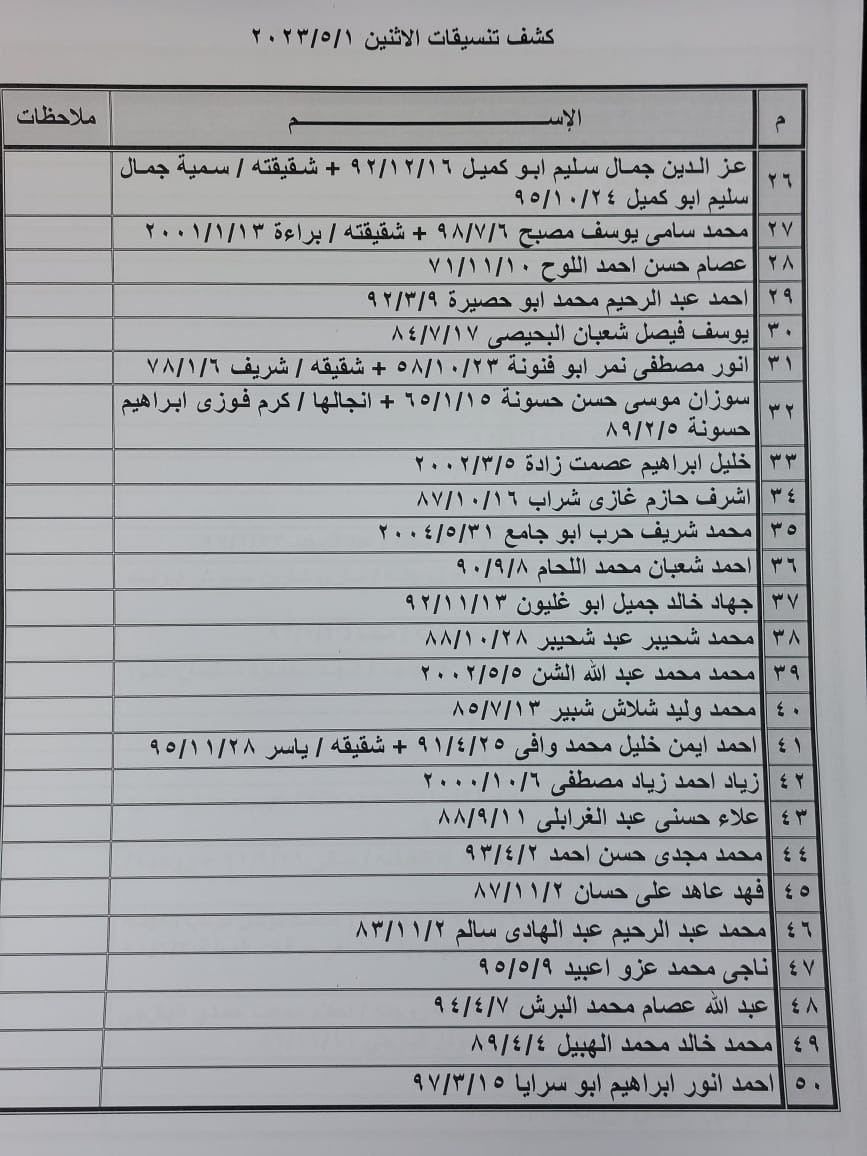 كشف تنسيقات الاثنين ٢٠٢٣/٥/١
م الإســـــــــــــــم ملاحظات
٢٦ عز الدين جمال سليم ابو كميل ٩٢/١٢/١٦ + شقيقته / سمية جمال
سليم ابو كميل ٩٥/١٠/٢٤
٢٧ محمد سامى يوسف مصبح ٩٨/٧/٦ + شقيقته / براءة ٢٠٠١/١/١٣
٢٨ عصام حسن احمد اللوح ٧١/١١/١٠
٢٩ احمد عبد الرحيم محمد ابو حصيرة ٩٢/٣/٩
٣٠ يوسف فيصل شعبان البحيصى ٨٤/٧/١٧
٣١ انور مصطفى نمر ابو فنونة ٥٨/١٠/٢٣ + شقيقه / شريف ٧٨/١/٦
٣٢ سوزان موسى حسن حسونة ٦٥/١/١٥ + انجالها / كرم فوزى ابراهيم
حسونة ٨٩/٢/٥
٣٣ خليل ابراهيم عصمت زادة ٢٠٠٢/٣/٥
٣٤ اشرف حازم غازى شراب ٨٧/١٠/١٦
٣٥ محمد شريف حرب ابو جامع ٢٠٠٤/٥/٣١
٣٦ احمد شعبان محمد اللحام ٩٠/٩/٨
٣٧ جهاد خالد جميل ابو غليون ٩٢/١١/١٣
٣٨ محمد شحيبر عبد شحيبر ٨٨/١٠/٢٨
٣٩ محمد محمد عبد الله الشن ٢٠٠٢/٥/٥
٤٠ محمد وليد شلاش شبير ٨٥/٧/١٣
٤١ احمد ايمن خليل محمد وافى ٩١/٤/٢٥ + شقيقه / ياسر ٩٥/١١/٢٨
٤٢ زياد احمد زياد مصطفى ٢٠٠٠/١٠/٦
٤٣ علاء حسنى عبد الغرابلى ٨٨/٩/١١
٤٤ محمد مجدى حسن احمد ٩٣/٤/٢
٤٥ فهد عاهد على حسان ٨٧/١١/٢
٤٦ محمد عبد الرحيم عبد الهادى سالم ٨٣/١١/٢
٤٧ ناجى محمد عزو اعبيد ٩٥/٥/٩
٤٨ عبد الله عصام محمد البرش ٩٤/٤/٧
٤٩ محمد خالد محمد الهبيل ٨٩/٤/٤
٥٠ احمد انور ابراهيم ابو سرايا ٩٧/٣/١٥